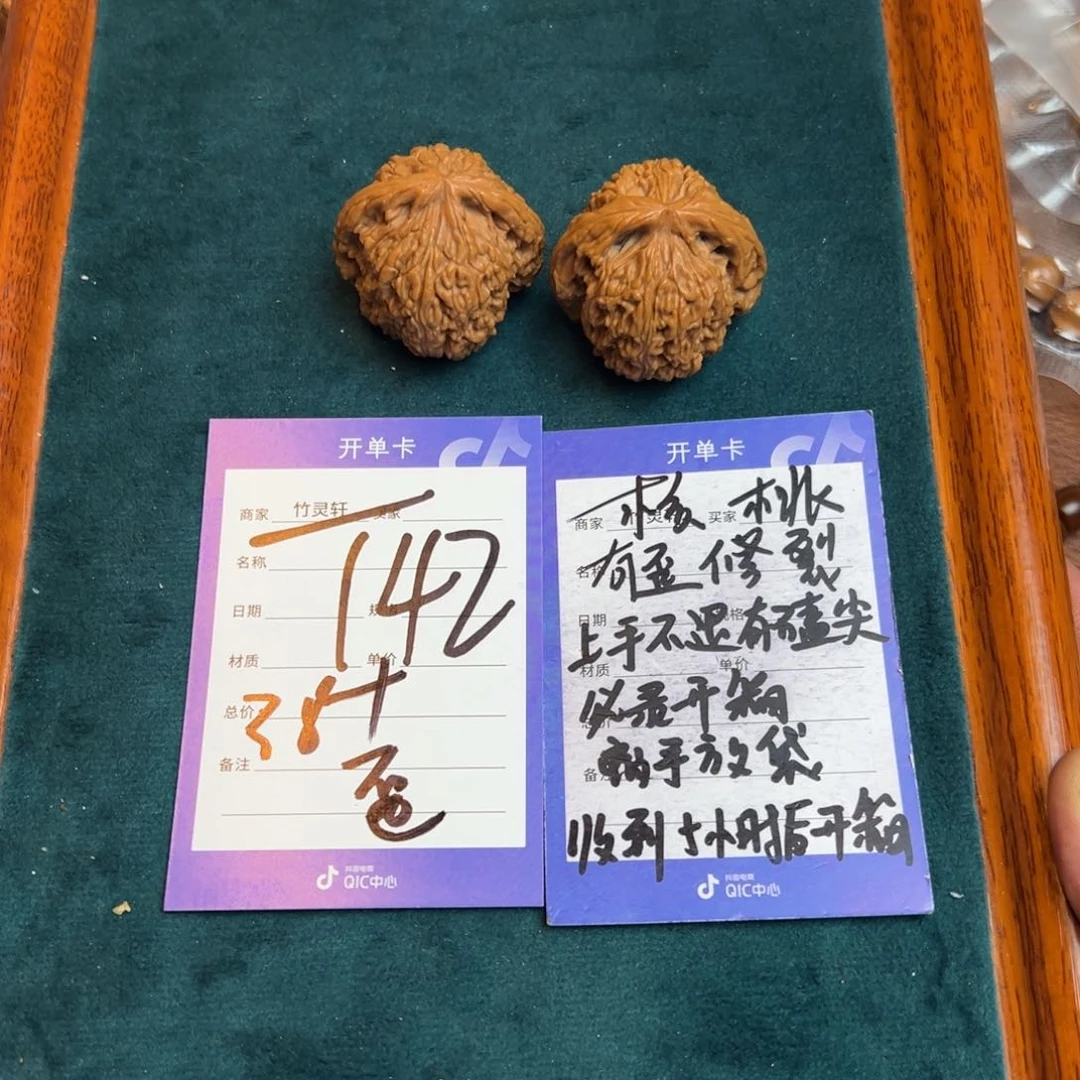 开单卡
商家 竹灵轩 买家
名称
142
日期 规格
材质 单价
总价
38 十
备注
歪
抖音电商
QIC中心
开单卡
商家 竹灵轩 买家
核桃
名称
有歪修裂
日期 规格
上手不退有磕尖
材质 单价
必录开箱
总价
备注
晾手放袋
收到十小时后开箱
抖音电商
QIC中心